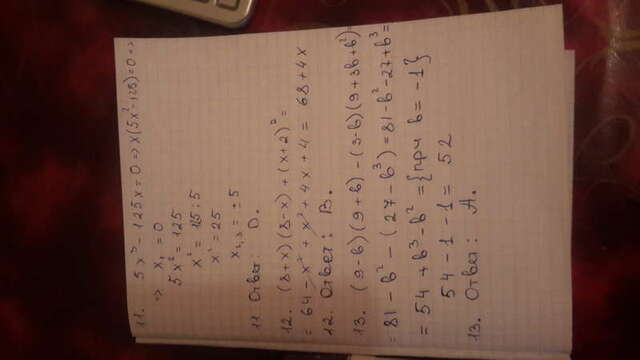 11. 5x³ - 125x = 0 => x(5x² - 125) = 0 =>
=> x₁ = 0
5x² = 125
x² = 125 : 5
x² = 25
x₂,₃ = ± 5
11. Ответ: D.
12. (8+x)(8-x) + (x+2)² =
= 64 - x² + x² + 4x + 4 = 68 + 4x
12. Ответ: B.
13. (9-b)(9+b) - (3-b)(9+3b+b²) =
= 81 - b² - (27 - b³) = 81 - b² - 27 + b³ =
= 54 + b³ - b² = {при b = -1}
54 - 1 - 1 = 52
13. Ответ: A.